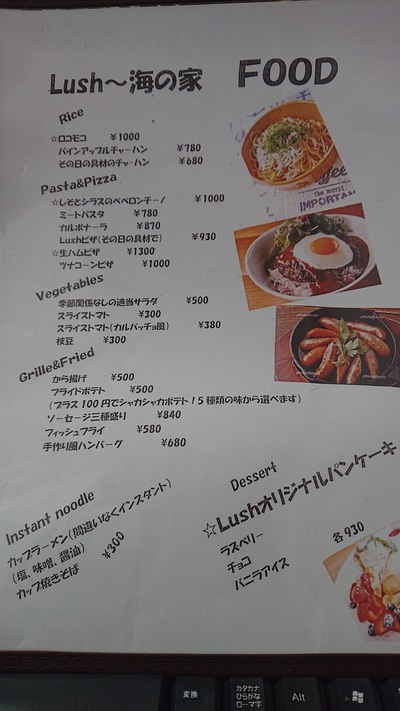 Lush～海の家 FOOD
Rice
☆ロコモコ ¥1000
パインアップルチャーハン ¥780
その日の具材のチャーハン ¥680
Pasta&Pizza
☆しそとシラスのペペロンチーノ ¥1000
ミートパスタ ¥780
カルボナーラ ¥870
Lushピザ(その日の具材で) ¥930
☆生ハムピザ ¥1300
ツナコーンピザ ¥1000
Vegetables
季節関係なしの適当サラダ ¥500
スライストマト ¥300
スライストマト(カルパッチョ風) ¥380
枝豆 ¥300
Grille&Fried
から揚げ ¥500
フライドポテト ¥500
(プラス100円でシャカシャカポテト！5種類の味から選べます)
ソーセージ三種盛り ¥840
フィッシュフライ ¥580
手作り風ハンバーグ ¥680
Instant noodle
カップラーメン(間違いなくインスタント)
(塩、味噌、醤油) ¥300
カップ焼きそば
Dessert
☆Lushオリジナルパンケーキ
各930
ラズベリー
チョコ
バニラアイス
the most
IMPORTA
変換
カタカナ
ひらがな
ローマ字
Alt